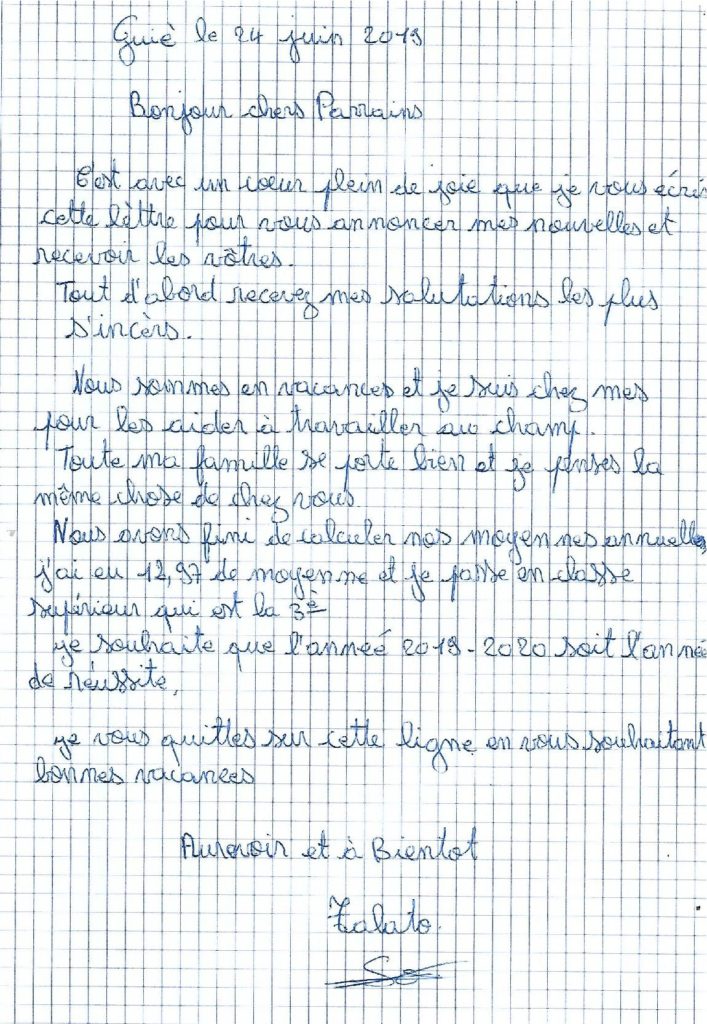 Guiè le 24 juin 2019
Bonjour chers Parrains
C'est avec un coeur plein de joie que je vous écris
cette lèttre pour vous annoncer mes nouvelles et
recevoir les vôtres.
Tout d'abord recevez mes salutations les plus
s'incèrs.
Nous sommes en vacances et je suis chez mes
pour les aider à travailler au champ.
Toute ma famille se porte bien et je penses la
même chose de chez vous.
Nous avons fini de calculer nos moyennes annuelles
j'ai eu 12,97 de moyenne et je passe en classe
supérieur qui est la 3è
je souhaite que l'annéé 2019-2020 soit l'année
de réussite,
je vous quittes sur cette ligne en vous souhaitant
bonnes vacances
Aurevoir et à Bientot
Talato.